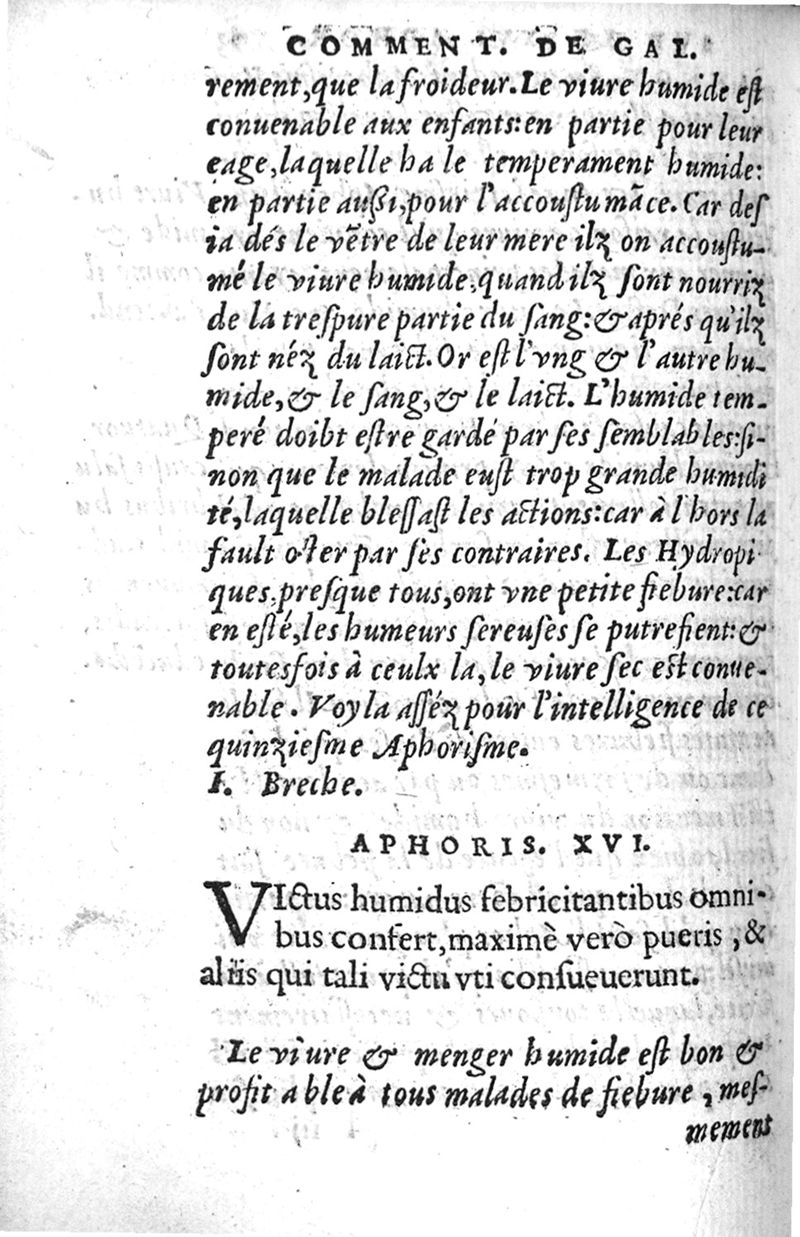 COMMENT. DE GAL.
rement,que la froideur.Le viure humide eſt
conuenable aux enfants:en partie pour leur
eage,laquelle ha le temperament humide:
en partie auſsi,pour l'accouſtumãce. Car deſ
ia dés le vẽtre de leur mere ilz on accouſtu-
mé le viure humide,quand ilz ſont nourriz
de la treſpure partie du ſang:& aprés qu'ilz
ſont néz du laict. Or eſt l'vng & l'autre hu-
mide,& le ſang,& le laict. L'humide tem-
peré doibt eſtre gardé par ſes ſemblables:ſi-
non que le malade euſt trop grande humidi
té,laquelle bleſſaſt les actions:car à l'hors la
fault oſter par ſes contraires. Les Hydropi
ques,preſque tous,ont vne petite fiebure:car
en eſté,les humeurs ſereuſes ſe putrefient:&
toutesfois à ceulx la,le viure ſec eſt conue-
nable. Voyla aſſéz pour l'intelligence de ce
quinzieſme Aphoriſme.
I. Breche.
APHORIS. XVI.
VIctus humidus febricitantibus omni-
bus confert,maximè verò pueris ,&
aliis qui tali victu vti conſueuerunt.
Le viure & menger humide eſt bon &
profit able à tous malades de fiebure ,meſ-
mement